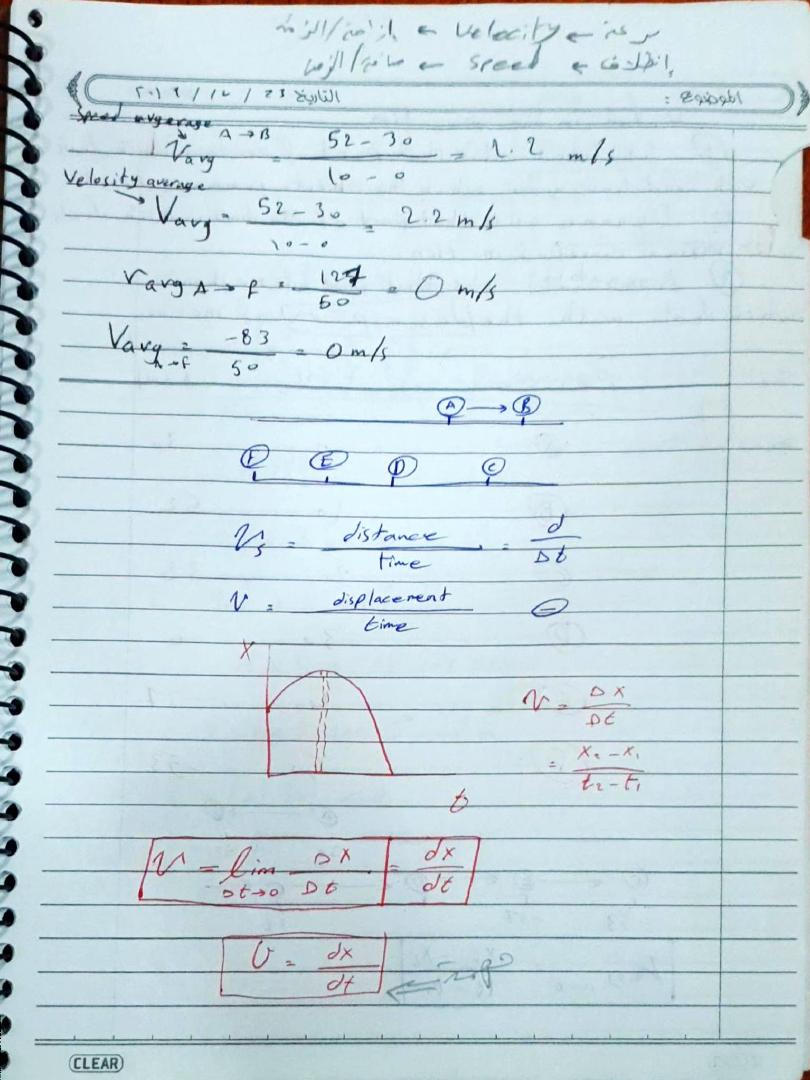 سرعة ← velocity ← إزاحة/الزمن
إنطلاق ← speed ← مسافة/الزمن
الموضوع : التاريخ ٢٠١٩ / ١٢ / ٢٣
Speed avgerage
Vavg A → B = 52 - 30 / 10 - 0 = 2.2 m/s
Velosity average
Vavg = 52 - 30 / 10 - 0 = 2.2 m/s
Vavg A → f = 127 / 50 = 0 m/s
Vavg A → f = -83 / 50 = 0 m/s
A → B
F E D C
Vs = distance / time = d / Δt
V = displacement / time
X
V = Δx / Δt
= x2 - x1 / t2 - t1
t
V = lim Δt→0 Δx / Δt = dx / dt
V = dx / dt
CLEAR